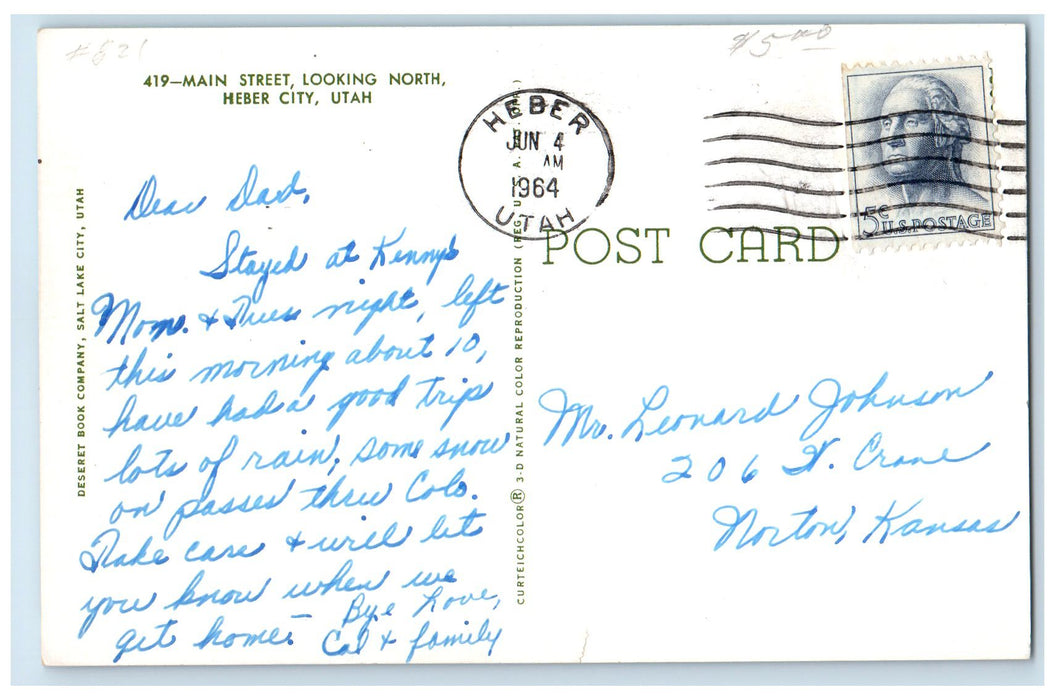 #821
$5.00
419—MAIN STREET, LOOKING NORTH,
HEBER CITY, UTAH
HEBER
JUN 4
AM
1964
UTAH
5¢ U.S. POSTAGE
POST CARD
DESERET BOOK COMPANY, SALT LAKE CITY, UTAH
Dear Dad,
Stayed at Kenny's
Mom. & Tues night, left
this morning about 10,
have had a good trip
lots of rain, some snow
on passes thru Colo.
Take care & will let
you know when we
get home.—
Bye Love,
Cal & family
CURTEICHCOLOR® 3-D NATURAL COLOR REPRODUCTION (REG. U.S.A.
Mr. Leonard Johnson
206 N. Crane
Norton, Kansas